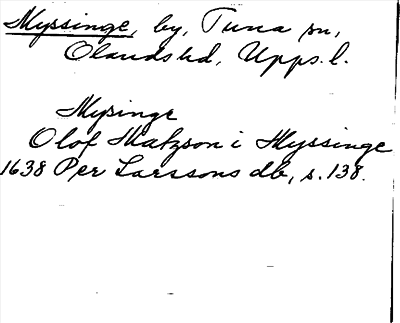 Myssinge, by, Tuna sn,
Olands hd, Upps. l.
Mysinge
Olof Matzson i Myssinge
1638 Per Larssons db, s. 138.